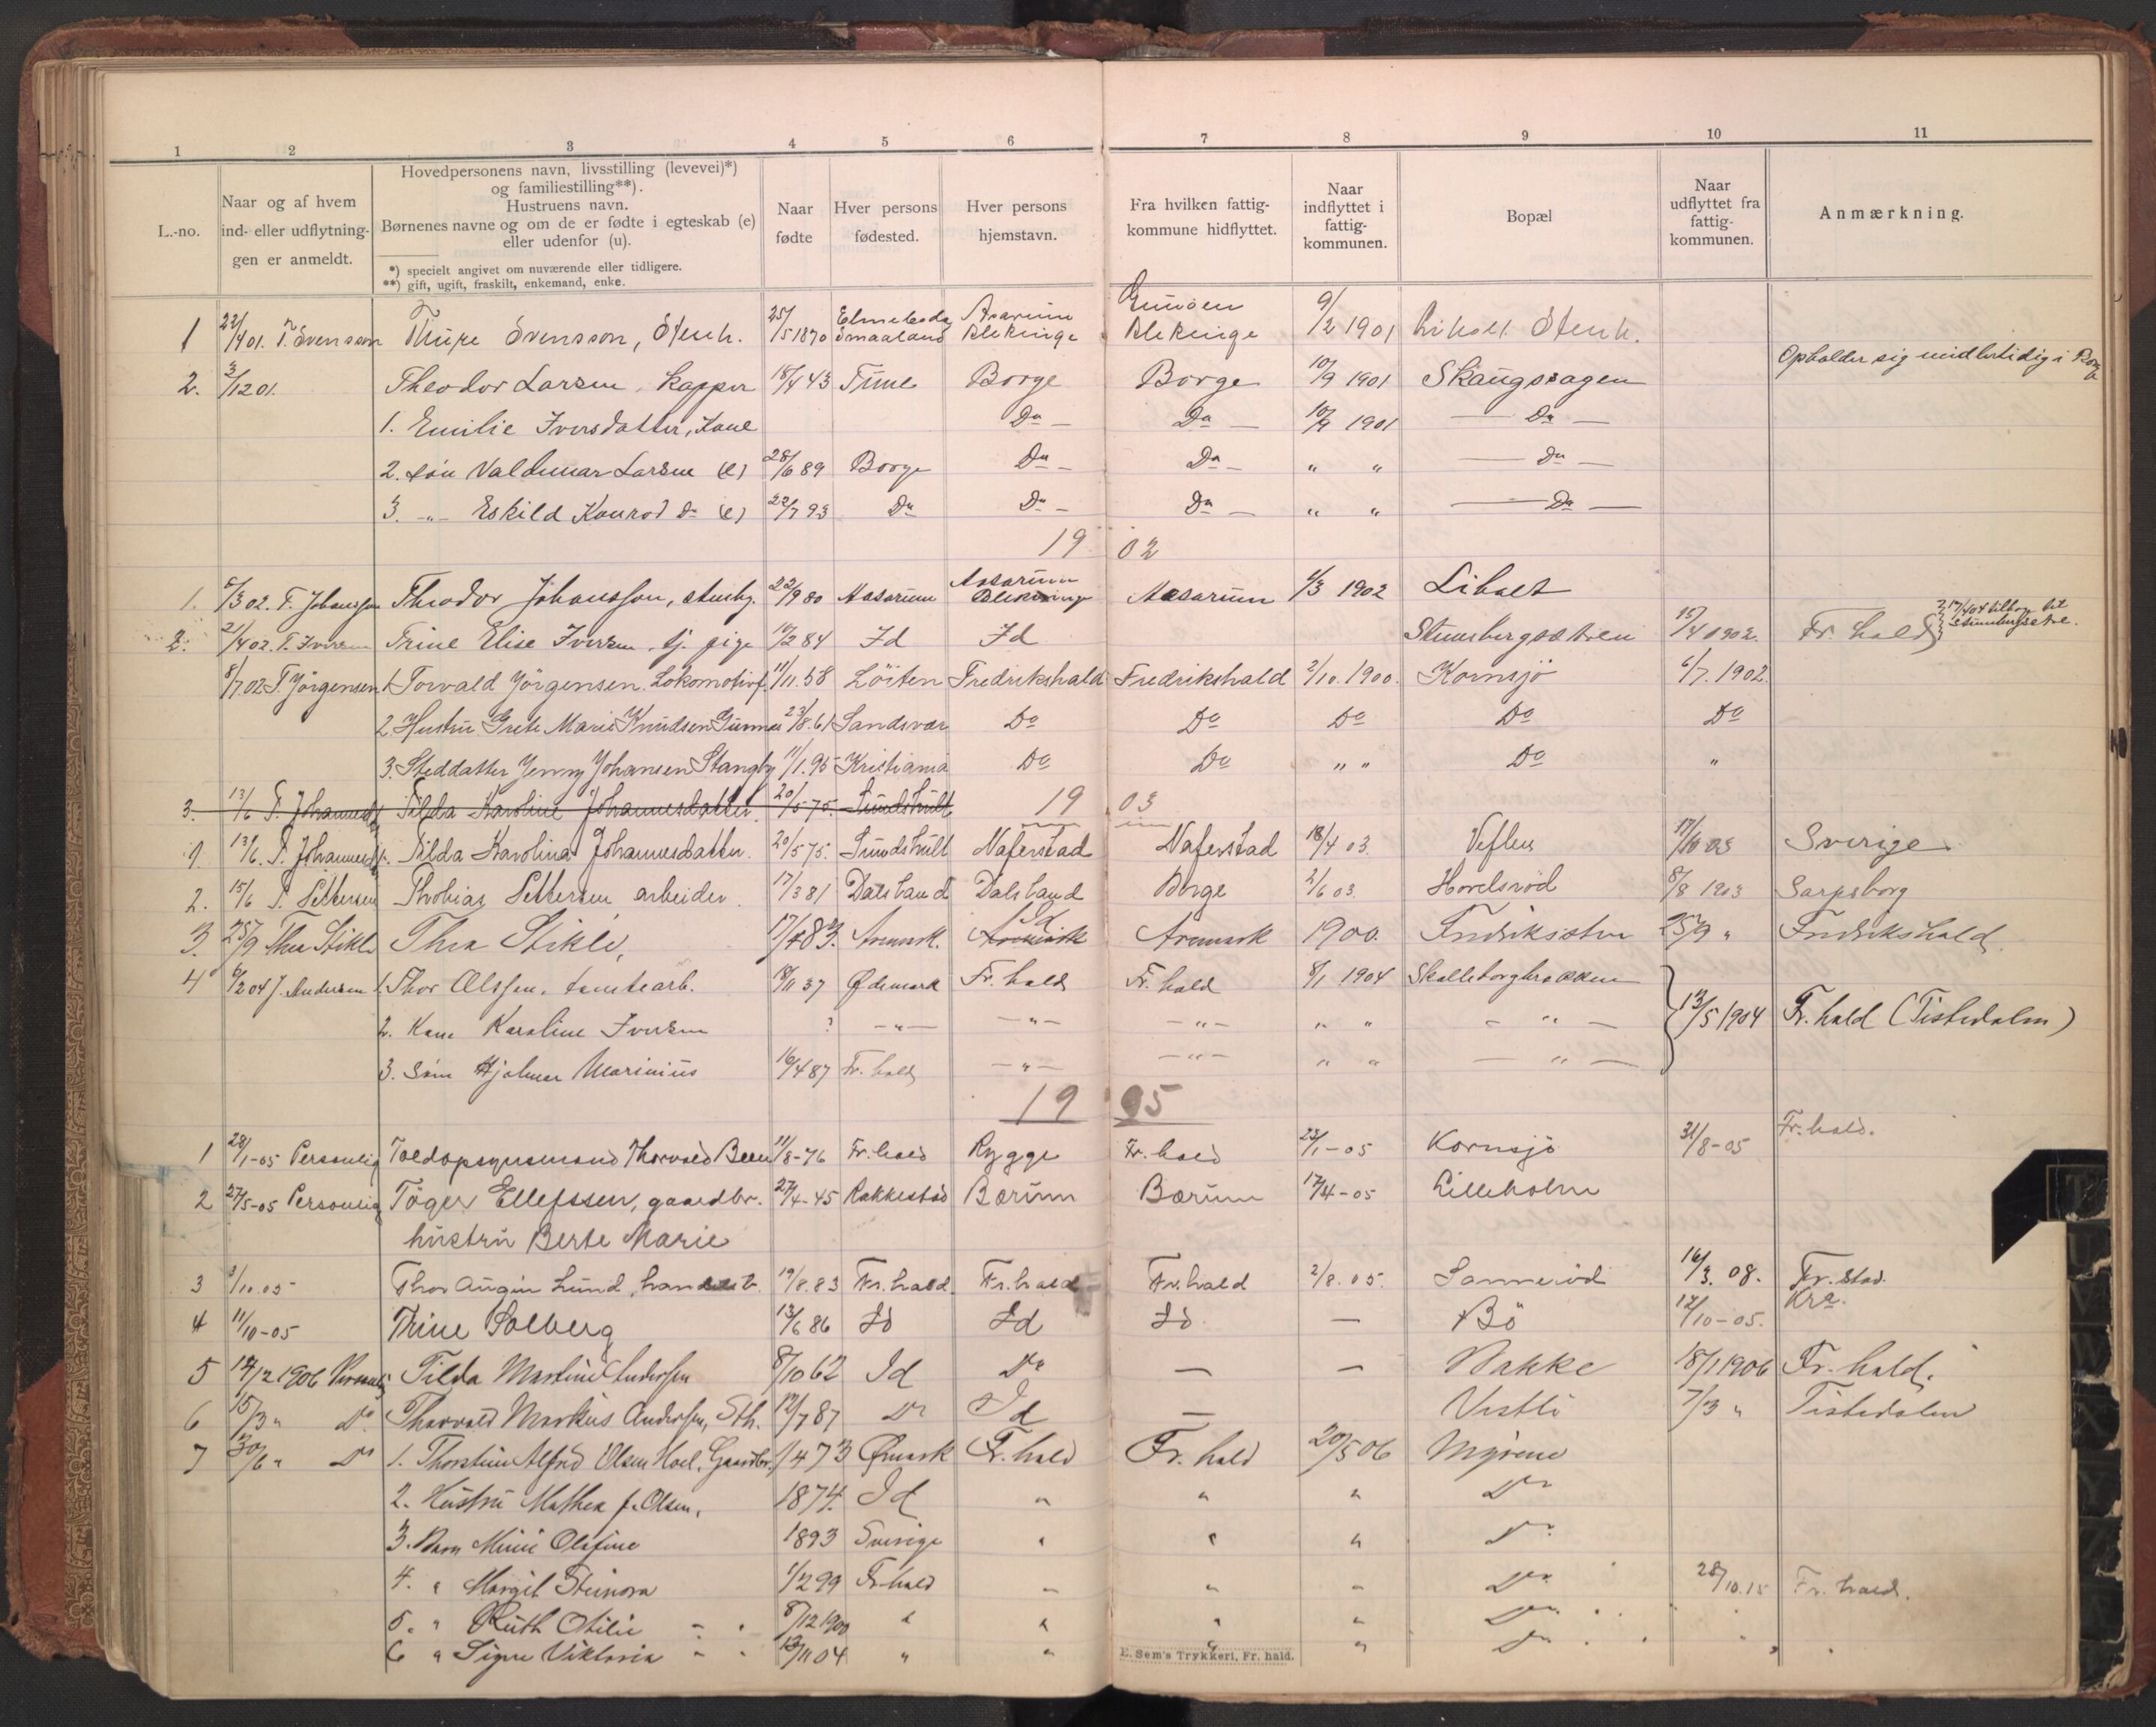 1 2 3 4 5 6 7 8 9 10 11
L.-no.
Naar og af hvem ind- eller udflytningen er anmeldt.
Hovedpersonens navn, livsstilling (levevei)*) og familiestilling**).
Hustruens navn.
Børnenes navne og om de er fødte i egteskab (e) eller udenfor (u).
*) specielt angivet om nuværende eller tidligere.
**) gift, ugift, fraskilt, enkemand, enke.
Naar fødte
Hver persons fødested.
Hver persons hjemstavn.
Fra hvilken fattigkommune hidflyttet.
Naar indflyttet i fattigkommunen.
Bopæl
Naar udflyttet fra fattigkommunen.
Anmærkning.
1 22/4 01. T. Svensson Thure Svensson, Stenh. 25/5 1870 Smaaland Blekinge Blekinge 9/2 1901 Stenh.
2. 3/12 01. Theodor Larsen, Kapper 18/4 43 Time Borge Borge 10/9 1901 Skaugsagen Opholder sig midlertidig i Borge
1. Emilie Iversdatter, Kone Do Do 10/9 1901 Do
2. søn Valdemar Larsen (e) 28/6 89 Borge Do Do " " Do
3. " Eskild Konrad Do (e) 22/7 93 Do Do Do " " Do
19 02
1. 6/3 02. T. Johansson Theodor Johansson, stenhg. 22/9 80 Aasarum Aasarum Blekinge Aasarum 4/3 1902 Liholt
2. 21/4 02. T. Iversen Trine Elise Iversen, tj. pige 10/2 84 Id Id Stumbergsætren 15/4 1902. Fr. hald 17/4 04 tilbage til Stumbergsætre.
8/7.02 T. Jörgensen 1. Torvald Jörgensen. Lokomotivf. 11/11.58 Löiten Fredrikshald Fredrikshald 2/10.1900. Kornsjö 6/7.1902.
2. Hustru Grete Marie Knudsen Gunnes 23/8.61 Sandsvær Do Do Do Do Do
3. Steddatter Jenny Johansen Stangby 11/1.95 Kristiania Do Do " " Do "
3. 13/6 T. Johannesd. Tilda Karoline Johannesdatter 20/5 75. Sundshult 19 03
1 13/6. T. Johannesd. Tilda Karolina Johannesdatter. 20/5 75. Sundshult Naferstad Naferstad 18/4 03. Veflen 17/10 03 Sverige
2. 15/6 T. Pettersen Thobias Pettersen arbeider. 17/3 81 Dalsland Dalsland Borge 2/6 03. Hovelsröd 8/8 1903 Sarpsborg
3. 25/9 Thea Stikle Thea Stikle, 17/4 83. Aremark. Aremark Id Aremark 1900. Fredriksten 25/9 " Fredrikshald
4 6/2 04 J. Andersen 1. Thor Olssen, tomtearb. 18/11 37 Ødemark Fr. hald Fr. hald 8/1 1904 Skalleborgbrækken
2. Kone Karoline Iversen ? " " " " " "
13/5 1904 Fr. hald (Tistedalen)
3. Søn Hjalmar Marinius 16/4 87 Fr. hald " " " " "
19 05
1 28/1-05 Personlig Toldopsynsmand Thorvald Been 11/8-76 Fr. hald Rygge Fr. hald 23/1-05 Kornsjö 31/8-05 Fr. hald.
2 27/5-05 Personlig Töger Ellefssen, gaardbr. 27/4-45 Rakkestad Bærum Bærum 17/4-05 Lilleholm
hustru Berte Marie
3 3/10.05 Thor August Lund, handelsb. 19/8.83 Fr. hald. Fr. hald Fr. hald 2/8.05. Sanneröd 16/3.08. Fr. stad.
4 11/10-05 Trine Solberg 13/6 86 Id Id Id — Bö 12/10-05. Kra.
5 14/2 1906 Personlig Tilda Martine Andersen 8/10 62 Id Do — — Bakke 18/1 1906 Fr. hald.
6 15/3 " Do Thorvald Markus Andersen, Sth. 12/7 87 Do Id — Vestli 7/3 " Tistedalen
7 30/6 " Do 1. Thorstein Alfred Olsen Hoel, Gaardbr. 1/4 73 Ømark Fr. hald Fr. hald 20/5 06 Myrene
2. Hustru Mathea f. Olsen, 1874. Id " " " Do
3. Barn Mimi Olefine 1893 Sverige " " " Do
4. " Margit Steinora 1/2 99 Fr. hald " " " Do 28/10.15 Fr. hald.
5. " Ruth Otilie " " 8/12 1900 " " " " Do " "
6 " Signe Viktoria " " 13/11 04 " " " " Do " " "
E. Sem's Trykkeri, Fr. hald.